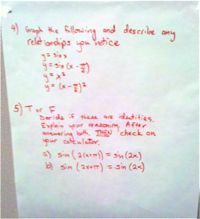 4) Graph the following and describe any
relationships you notice
y = sin x
y = sin (x - π/2)
y = x²
y = (x - π/2)²
5) T or F
Decide if these are identities.
Explain your reasoning. After
answering both, THEN check on
your calculator.
a) sin (2(x+π)) = sin (2x)
b) sin (2x+π) = sin (2x)